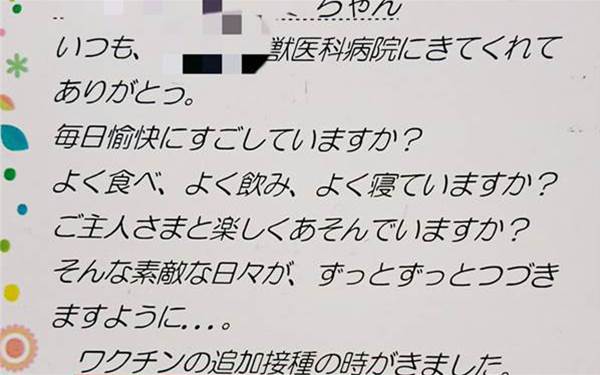 ちゃん
いつも、獣医科病院にきてくれて
ありがとう。
毎日愉快にすごしていますか?
よく食べ、よく飲み、よく寝ていますか?
ご主人さまと楽しくあそんでいますか?
そんな素敵な日々が、ずっとずっとつづき
ますように...。
ワクチンの追加接種の時がきました。